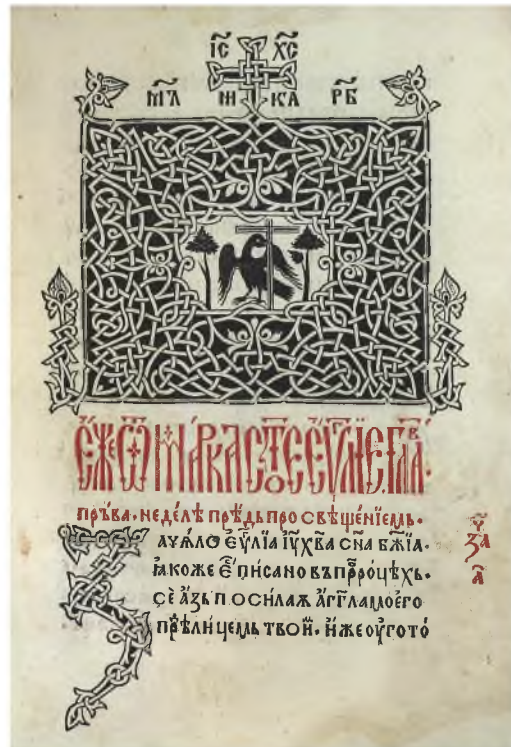 І҃С Х҃С
М҃Л НИ КА Р҃Б
Е҆́же ѿ Ма́рка ст҃ое є҆ѵ҃лїе глаⷡ҇.
пръ́ва. недѣ́лѣ прѣ́дь просвѣще́нїемь.
Зачѧ́ло є҆ѵ҃лїа і҆ѵ҃ х҃ва сн҃а бж҃їа.
ꙗ҆коже є҆́ писано въ прⷪ҇роцѣхь.
се̏ а҆́зь посилаѫ а҆́гг҃ла моего
прѣⷣ лицемь твои҆́. и҆́же оу҆гото́
за҃
а҃